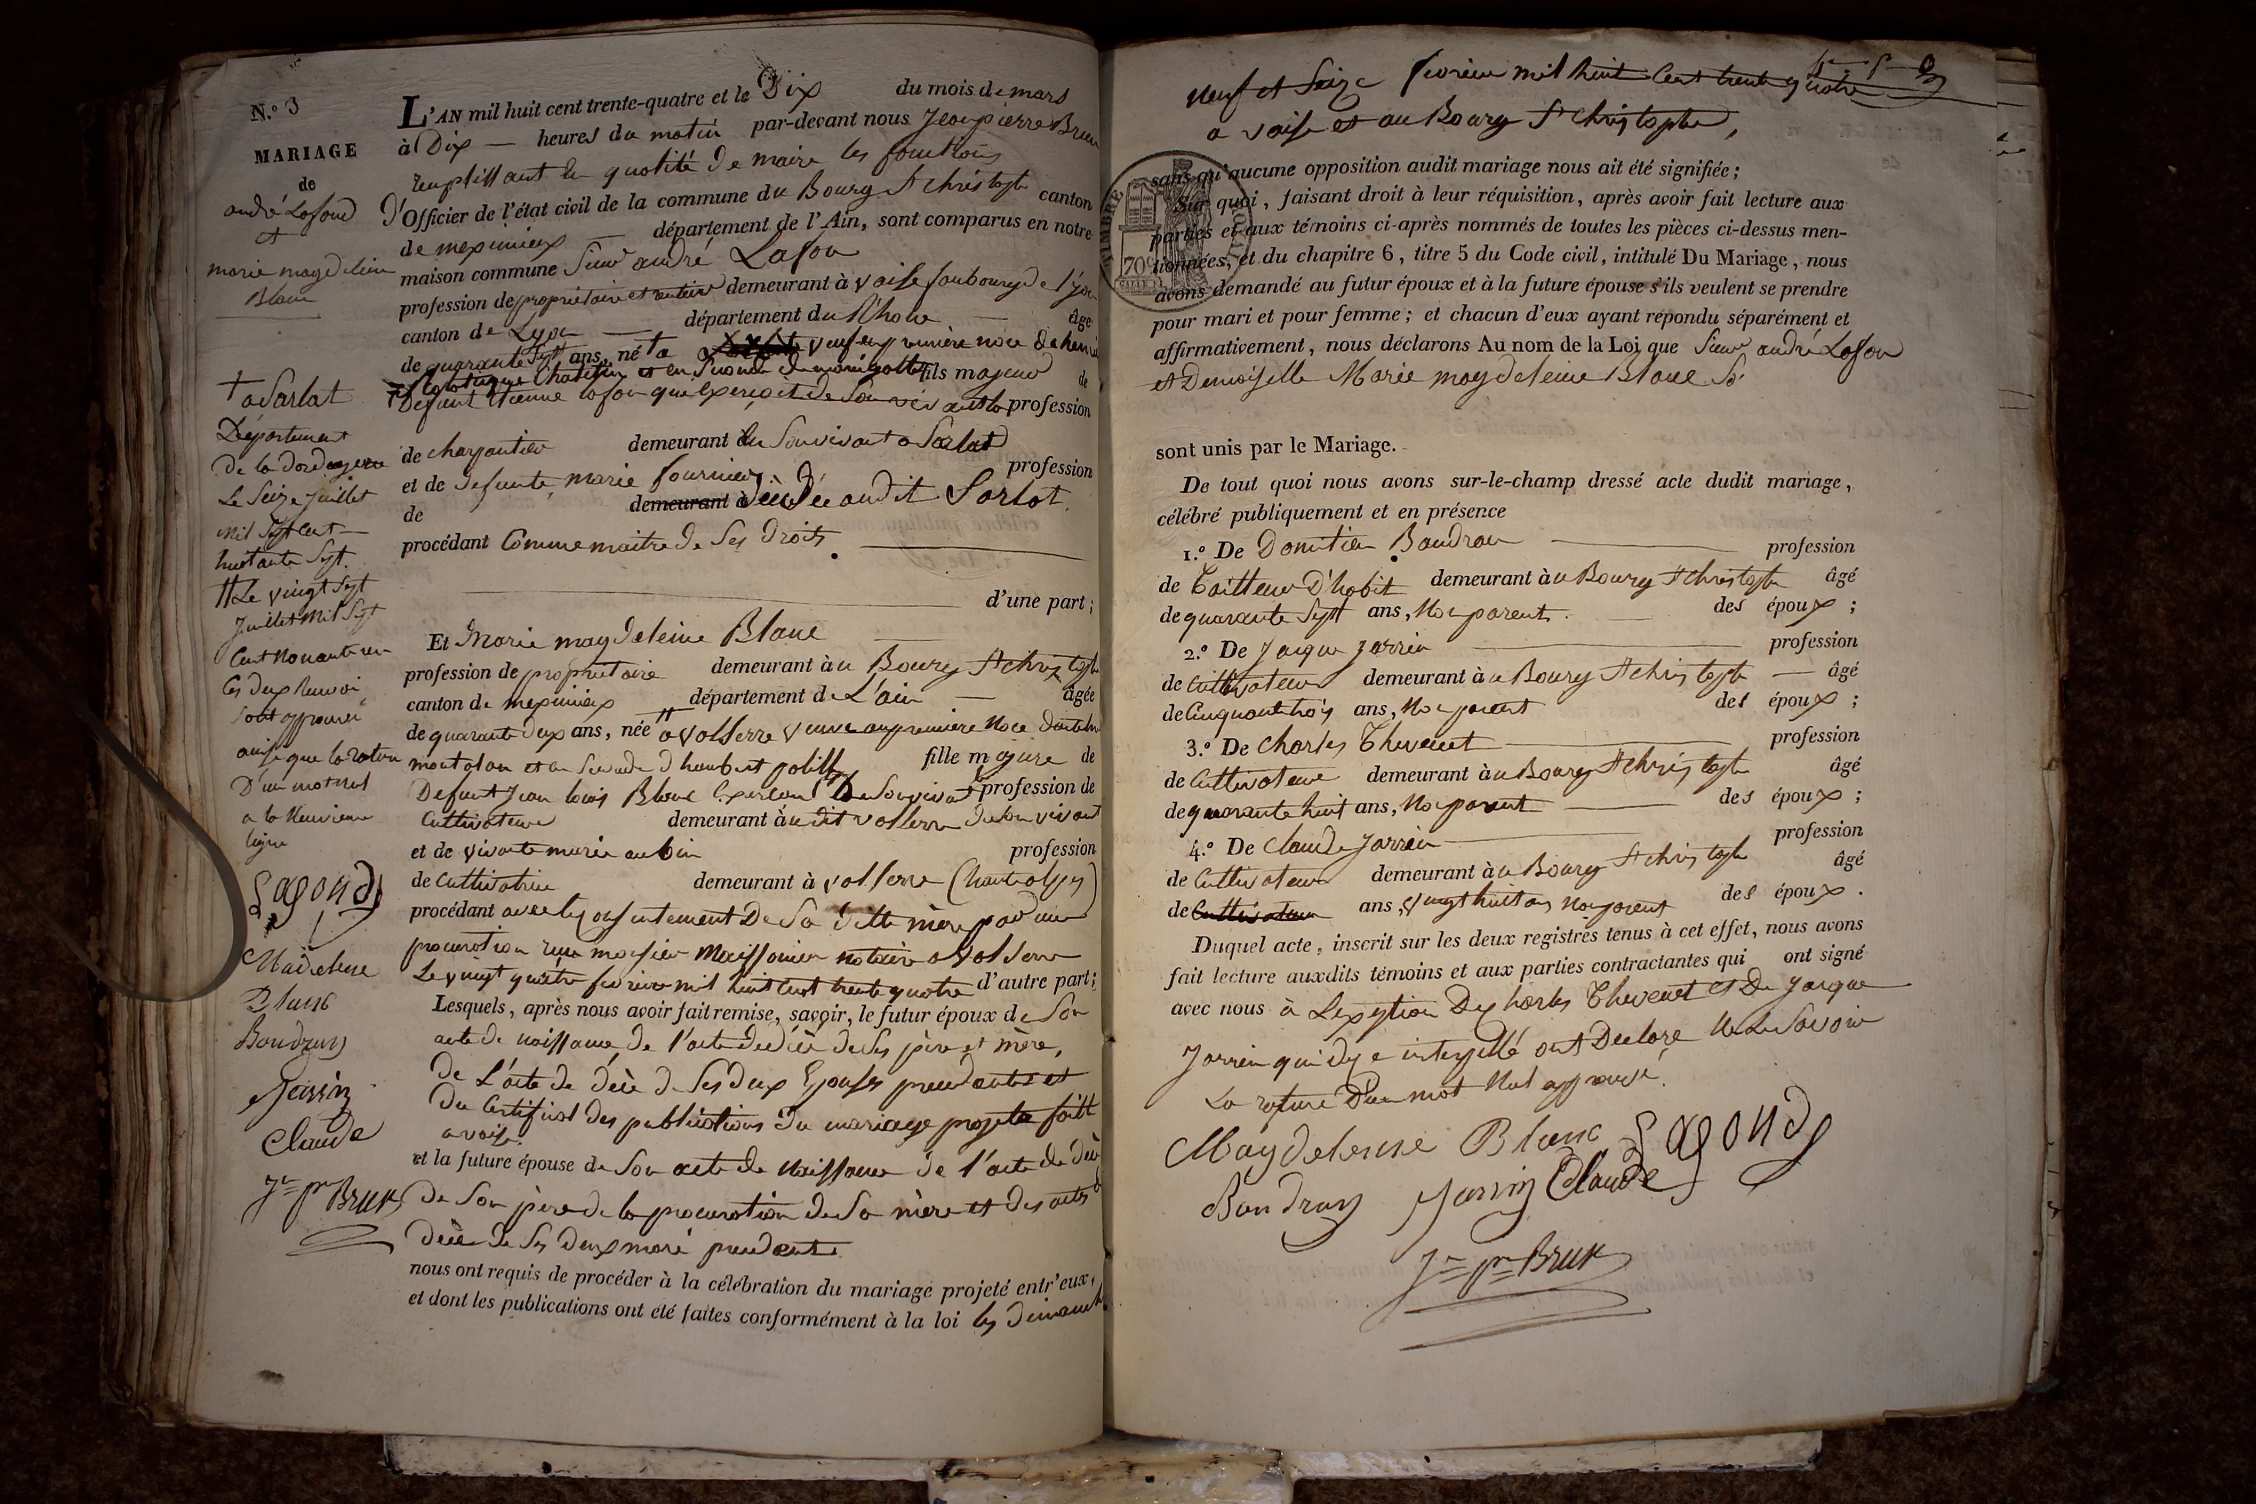 N.º 3
MARIAGE
de
andré Lafond
et
marie magdeleine
Blanc
L'AN mil huit cent trente-quatre et le Dix du mois de mars
à Dix heures du matin par-devant nous Jean pierre Brun
remplissant en qualité de maire les fonctions
d'Officier de l'état civil de la commune du Bourg St christophe canton
de meximieux département de l'Ain, sont comparus en notre
maison commune Sieur andré Lafon
profession de propriétaire et rentier demeurant à vaise faubourg de Lyon
canton de Lyon département du Rhone âgé
de quarante sept ans, né † a veuf en première noce de
et en fils majeur de
Defunt Etienne lafon qu'exerçoit de son vivant la profession
de charpantier demeurant de Son vivant a Sarlat
et de defunte marie fournier profession
de demeurant à décédée audit Sarlat.
procédant Comme maitre de Ses droits.
d'une part;
† a Sarlat
Département
de la dordogne
Le Seize Juillet
mil Sept Cent
huitante Sept.
Le vingt Sept
Juillet Mil Sept
Cent Nonante un
Ces deux Renvoi
Sont approuvé
ainsi que la rature
D'un mot nul
a la Neuvieme
ligne
Lafond
Madelene
Blanc
Baudran
Jarrin
Claude
Jn pre Brun
Et Marie magdeleine Blanc
profession de propriétaire demeurant à u Bourg St christophe
canton de meximieux département de L'ain âgée
de quarante deux ans, née a volserre veuve en première Noce
et en Seconde d'humbert fille majeure de
Defunt Jean louis Blanc de Son vivant profession de
Cultivateur demeurant à u dit volserre de son vivant
et de vivante marie aubin profession
de Cultivatrice demeurant à volserre (hautes alpes)
procédant avec le consentement De Sa ditte mère par une
procuration reçu monsieur Maissonier notaire a Volserre
Le vingt quatre fevrier mil huit cent trente quatre d'autre part;
Lesquels, après nous avoir fait remise, savoir, le futur époux de Son
acte de naissance de l'acte décè de Ses père et mère,
De L'acte de décè de Ses deux Epouses précédentes et
Du Certificat des publications du mariage projeté faitt
a vaise.
et la future épouse de Son acte de naissance de l'acte de décè
De Son père de la procuration de Sa mère et des actes d
Décè de Ses deux mari précédents
nous ont requis de procéder à la célébration du mariage projeté entr'eux,
et dont les publications ont été faites conformément à la loi les dimanche
neuf et Seize fevrier mil huit Cent trente quatre
a vaise et au Bourg St christophe,
sans qu'aucune opposition audit mariage nous ait été signifiée;
Sur quoi, faisant droit à leur réquisition, après avoir fait lecture aux
parties et aux témoins ci-après nommés de toutes les pièces ci-dessus men-
tionnées, et du chapitre 6, titre 5 du Code civil, intitulé Du Mariage, nous
avons demandé au futur époux et à la future épouse s'ils veulent se prendre
pour mari et pour femme; et chacun d'eux ayant répondu séparément et
affirmativement, nous déclarons Au nom de la Loi que Sieur andré Lafon
et Demoiselle Marie magdeleine Blanc
sont unis par le Mariage.
De tout quoi nous avons sur-le-champ dressé acte dudit mariage,
célébré publiquement et en présence
1.º De Domitien Baudran profession
de Tailleur D'habit demeurant à u Bourg St christophe âgé
de quarante Sept ans, Non parent des époux;
2.º De Jacque Jarrin profession
de Cultivateur demeurant à u Bourg St christophe âgé
de Cinquante trois ans, Non parent des époux;
3.º De Charles Thevenet profession
de Cultivateur demeurant à u Bourg St christophe âgé
de quarante huit ans, Non parent des époux;
4.º De Claude Jarrin profession
de Cultivateur demeurant à u Bourg St christophe âgé
de Cultivateur ans, vingt huit ans Non parent des époux.
Duquel acte, inscrit sur les deux registres tenus à cet effet, nous avons
fait lecture auxdits témoins et aux parties contractantes qui ont signé
avec nous à L'exeption De Charles Thevenet et De Jacque
Jarrin qui de ce interpellé ont Declaré Ne Le Savoir
La rature D'un mot Nul approuvé.
Magdelenne Blanc Lafond
Baudran Jarrin Claude
Jn pre Brun
TIMBRE
ROYAL
70c